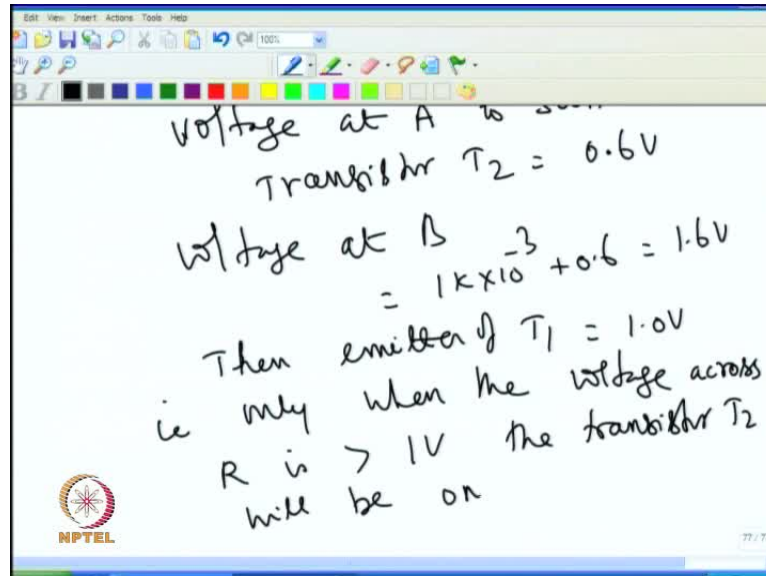 Edit View Insert Actions Tools Help
100%
B I
voltage at A is
Transistor T2 = 0.6V
Voltage at B
= 1K×10^-3 + 0.6 = 1.6V
Then emitter of T1 = 1.0V
ie only when the voltage across
R is > 1V the transistor T2
will be on
NPTEL